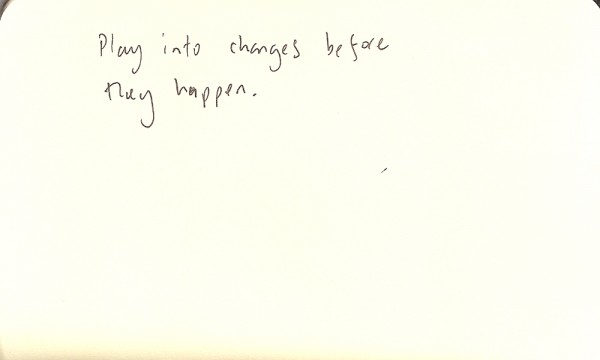 Play into changes before
they happen.